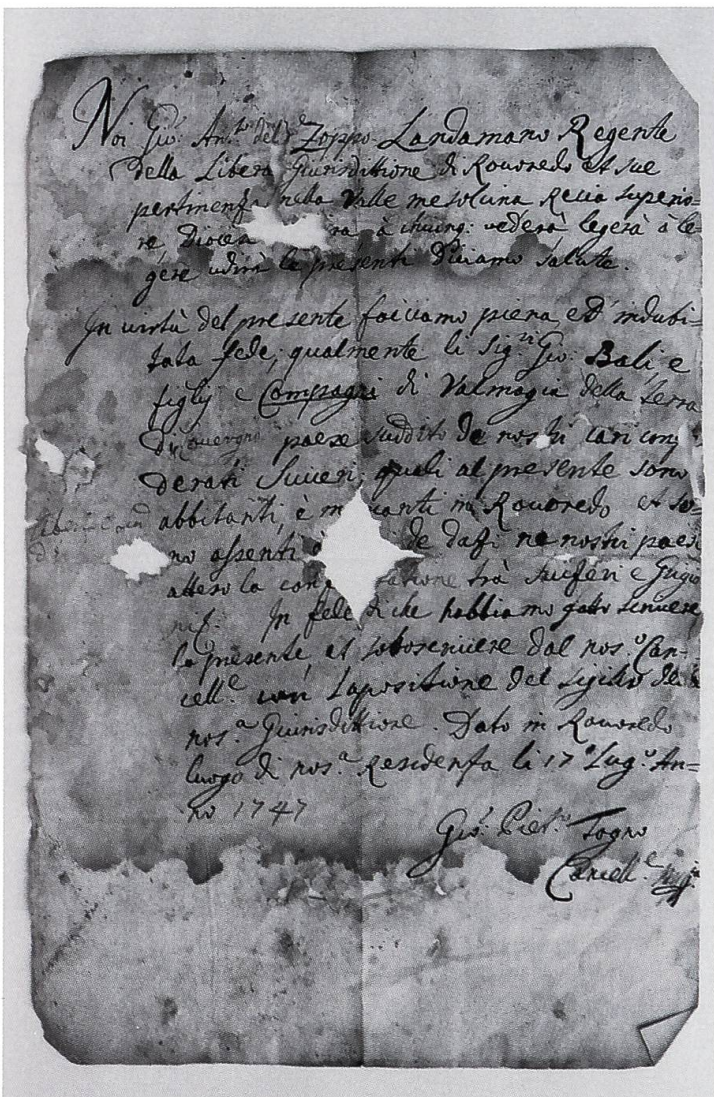 Noi Gio: An.to del Zoppo Landamano Regente
della Libera Giurisdittione di Rouoredo et sue
pertinenze nella Valle mesolcina Recia superio=
re Dioces ra à chiunq: vederà legerà ò le=
gere udirà le presenti Diciamo salute.
In virtù del presente facciamo piena ed' indubi=
tata fede, qualmente li Sig.ri Gio: Bali, e
figlij e Compagni di Valmagia della terra
di paese suddito de nostri cari
derati Suiceri, quali al presente sono
abbitanti, è in Rouoredo et so=
no assenti de dazi ne nostri paesi
atteso la tra Suiseri e Grigio
ni. In fede di che habbiamo fatto scriuere
la presente, et sotoscriuere dal nos.o Can=
cell.e con l'apositione del sigillo della
nos.a Giurisdittione. Dato in Rouoredo
luogo di nos.a Residenza li 17 Lug.o An=
no 1747
Gio: Piet.o Togno
Cancell.e